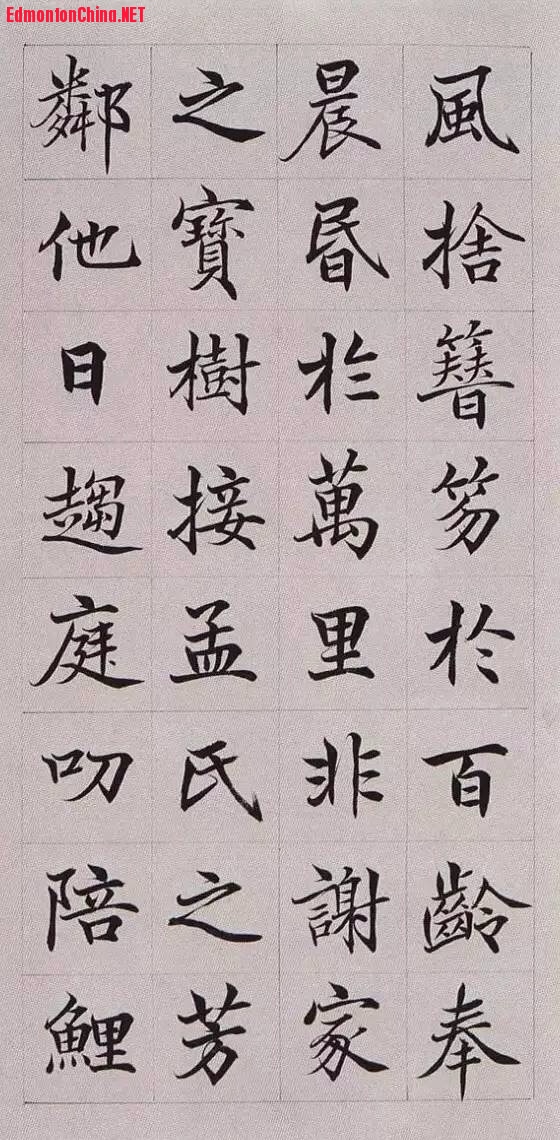 EdmontonChina.NET
風捨簪笏於百齡奉
晨昏於萬里非謝家
之寶樹接孟氏之芳
鄰他日趨庭叨陪鯉